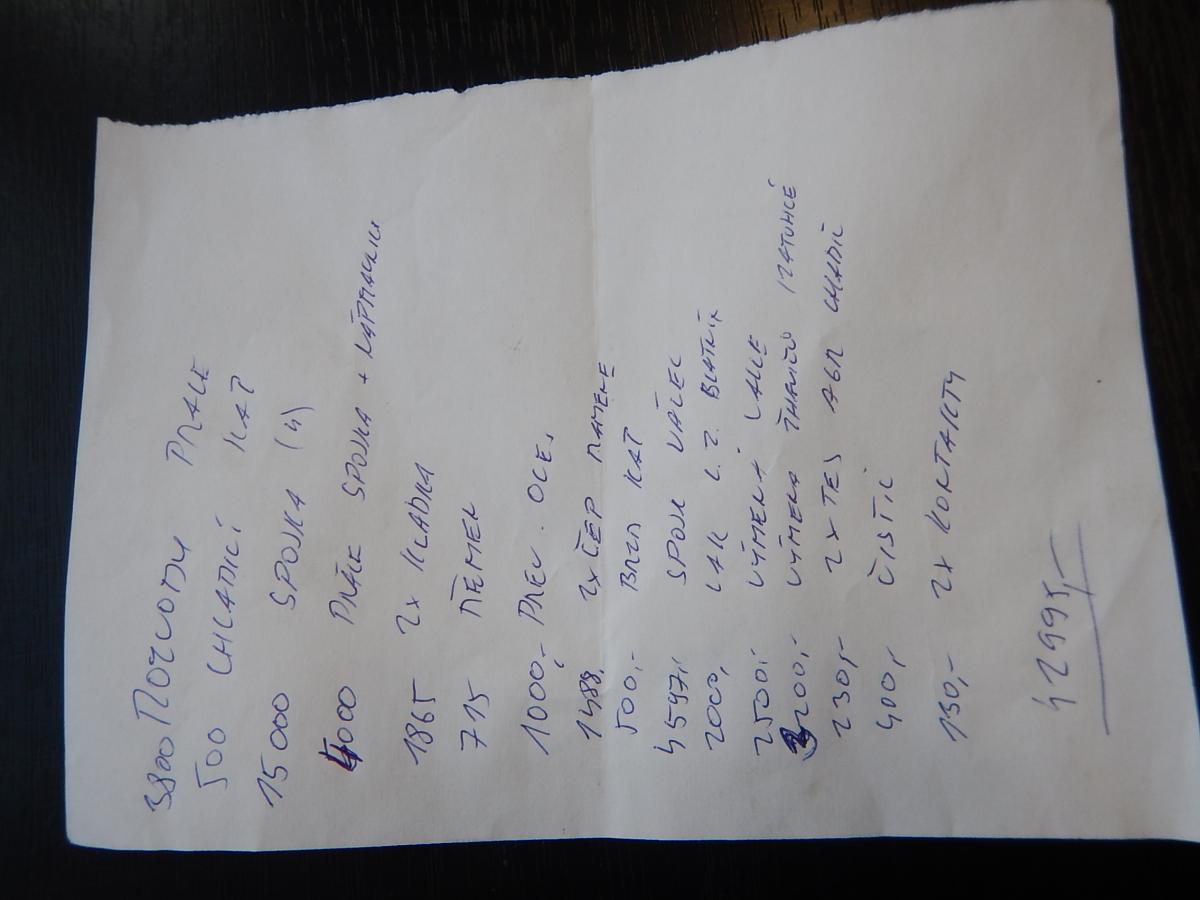 3800 ROZVODY PRACE
500 CHLADICÍ KAP
15 000 SPOJKA (4)
4000 PRÁCE SPOJKA +
1865 2x KLADKA
715 ŘEMEN
1000,- PŘEV. OLEJ
1488,- 2x ČEP RAMENE
500,- BRZD KAP
4597,- SPOJK VÁLEC
2000,- LAK L.Z. BLATNÍK
2500,- VÝMĚNA LALE
3200,- VÝMĚNA ŽHAVIČŮ (ZATUHLÉ
230,- 2x TES AGR CHLADIČ
400,- ČISTIČ
130,- 2x KONTAKTY
42995,-